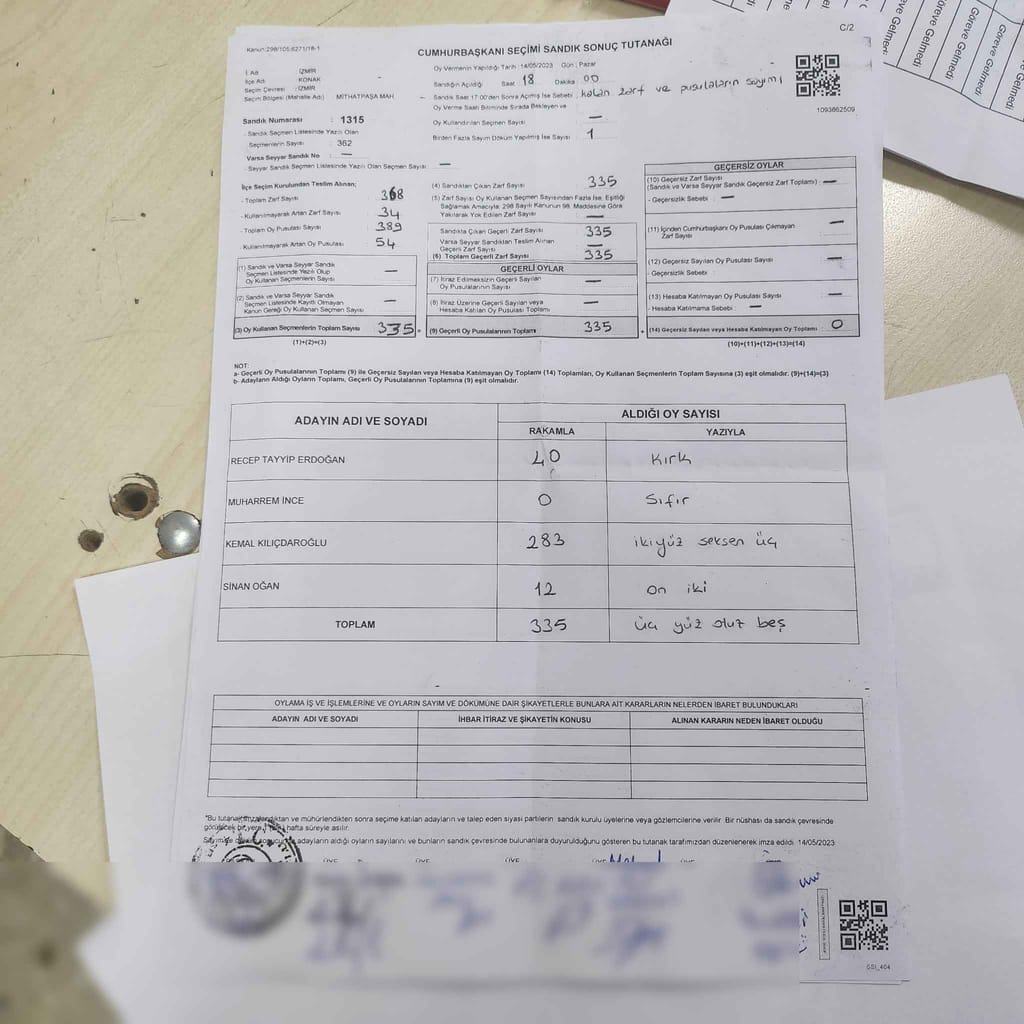 C/2
Kanun:298/105:6271/18-1
CUMHURBAŞKANI SEÇİMİ SANDIK SONUÇ TUTANAĞI
İl Adı : İZMİR
İlçe Adı : KONAK
Seçim Çevresi : İZMİR
Seçim Bölgesi (Mahalle Adı) : MİTHATPAŞA MAH
Oy Vermenin Yapıldığı Tarih : 14/05/2023 Gün : Pazar
Sandığın Açıldığı Saat 18 Dakika 00
Sandık Saat 17:00'den Sonra Açılmış İse Sebebi : kalan zarf ve pusulaların sayımı
Oy Verme Saati Bitiminde Sırada Bekleyen ve
Oy Kullandırılan Seçmen Sayısı : —
Birden Fazla Sayım Döküm Yapılmış İse Sayısı : 1
1093862509
Sandık Numarası : 1315
- Sandık Seçmen Listesinde Yazılı Olan
Seçmenlerin Sayısı : 362
Varsa Seyyar Sandık No : —
- Seyyar Sandık Seçmen Listesinde Yazılı Olan Seçmen Sayısı : —
İlçe Seçim Kurulundan Teslim Alınan;
- Toplam Zarf Sayısı : 368
- Kullanılmayarak Artan Zarf Sayısı : 34
- Toplam Oy Pusulası Sayısı : 389
- Kullanılmayarak Artan Oy Pusulası : 54
(1) Sandık ve Varsa Seyyar Sandık
Seçmen Listesinde Yazılı Olup
Oy Kullanan Seçmenlerin Sayısı —
(2) Sandık ve Varsa Seyyar Sandık
Seçmen Listesinde Kayıtlı Olmayan
Kanun Gereği Oy Kullanan Seçmen Sayısı —
(3) Oy Kullanan Seçmenlerin Toplam Sayısı 335
(1)+(2)=(3)
(4) Sandıktan Çıkan Zarf Sayısı 335
(5) Zarf Sayısı Oy Kullanan Seçmen Sayısından Fazla İse, Eşitliği
Sağlamak Amacıyla; 298 Sayılı Kanunun 98. Maddesine Göre
Yakılarak Yok Edilen Zarf Sayısı : —
Sandıkta Çıkan Geçerli Zarf Sayısı 335
Varsa Seyyar Sandıktan Teslim Alınan
Geçerli Zarf Sayısı —
(6) Toplam Geçerli Zarf Sayısı 335
GEÇERLİ OYLAR
(7) İtiraz Edilmeksizin Geçerli Sayılan
Oy Pusulalarının Sayısı : —
(8) İtiraz Üzerine Geçerli Sayılan veya
Hesaba Katılan Oy Pusulası Toplamı —
(9) Geçerli Oy Pusulalarının Toplamı 335
GEÇERSİZ OYLAR
(10) Geçersiz Zarf Sayısı
(Sandık ve Varsa Seyyar Sandık Geçersiz Zarf Toplamı) —
- Geçersizlik Sebebi : —
(11) İçinden Cumhurbaşkanı Oy Pusulası Çıkmayan
Zarf Sayısı —
(12) Geçersiz Sayılan Oy Pusulası Sayısı —
- Geçersizlik Sebebi :
(13) Hesaba Katılmayan Oy Pusulası Sayısı —
- Hesaba Katılmama Sebebi : —
(14) Geçersiz Sayılan veya Hesaba Katılmayan Oy Toplamı : 0
(10)+(11)+(12)+(13)=(14)
NOT:
a- Geçerli Oy Pusulalarının Toplamı (9) ile Geçersiz Sayılan veya Hesaba Katılmayan Oy Toplamı (14) Toplamları, Oy Kullanan Seçmenlerin Toplam Sayısına (3) eşit olmalıdır. (9)+(14)=(3)
b- Adayların Aldığı Oyların Toplamı, Geçerli Oy Pusulalarının Toplamına (9) eşit olmalıdır.
ADAYIN ADI VE SOYADI ALDIĞI OY SAYISI
RAKAMLA YAZIYLA
RECEP TAYYİP ERDOĞAN 40 kırk
MUHARREM İNCE 0 Sıfır
KEMAL KILIÇDAROĞLU 283 ikiyüz seksen üç
SİNAN OĞAN 12 on iki
TOPLAM 335 üç yüz otuz beş
OYLAMA İŞ VE İŞLEMLERİNE VE OYLARIN SAYIM VE DÖKÜMÜNE DAİR ŞİKAYETLERLE BUNLARA AİT KARARLARIN NELERDEN İBARET BULUNDUKLARI
ADAYIN ADI VE SOYADI İHBAR İTİRAZ VE ŞİKAYETİN KONUSU ALINAN KARARIN NEDEN İBARET OLDUĞU
*Bu tutanak imzalandıktan ve mühürlendikten sonra seçime katılan adayların ve talep eden siyasi partilerin sandık kurulu üyelerine veya gözlemcilerine verilir. Bir nüshası da sandık çevresinde
görülecek bir yere hafta süreyle asılır.
adayların aldığı oyların sayılarını ve bunların sandık çevresinde bulunanlara duyurulduğunu gösteren bu tutanak tarafımızdan düzenlenerek imza edildi. 14/05/2023
ÜYE ÜYE ÜYE ÜYE ÜYE
GSI_404
Göreve Gelmedi
Göreve Gelmedi
Göreve Gelmedi
Göreve Gelmedi